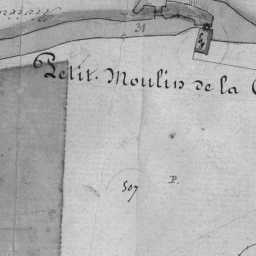 21
Petit Moulin de la
507
P.